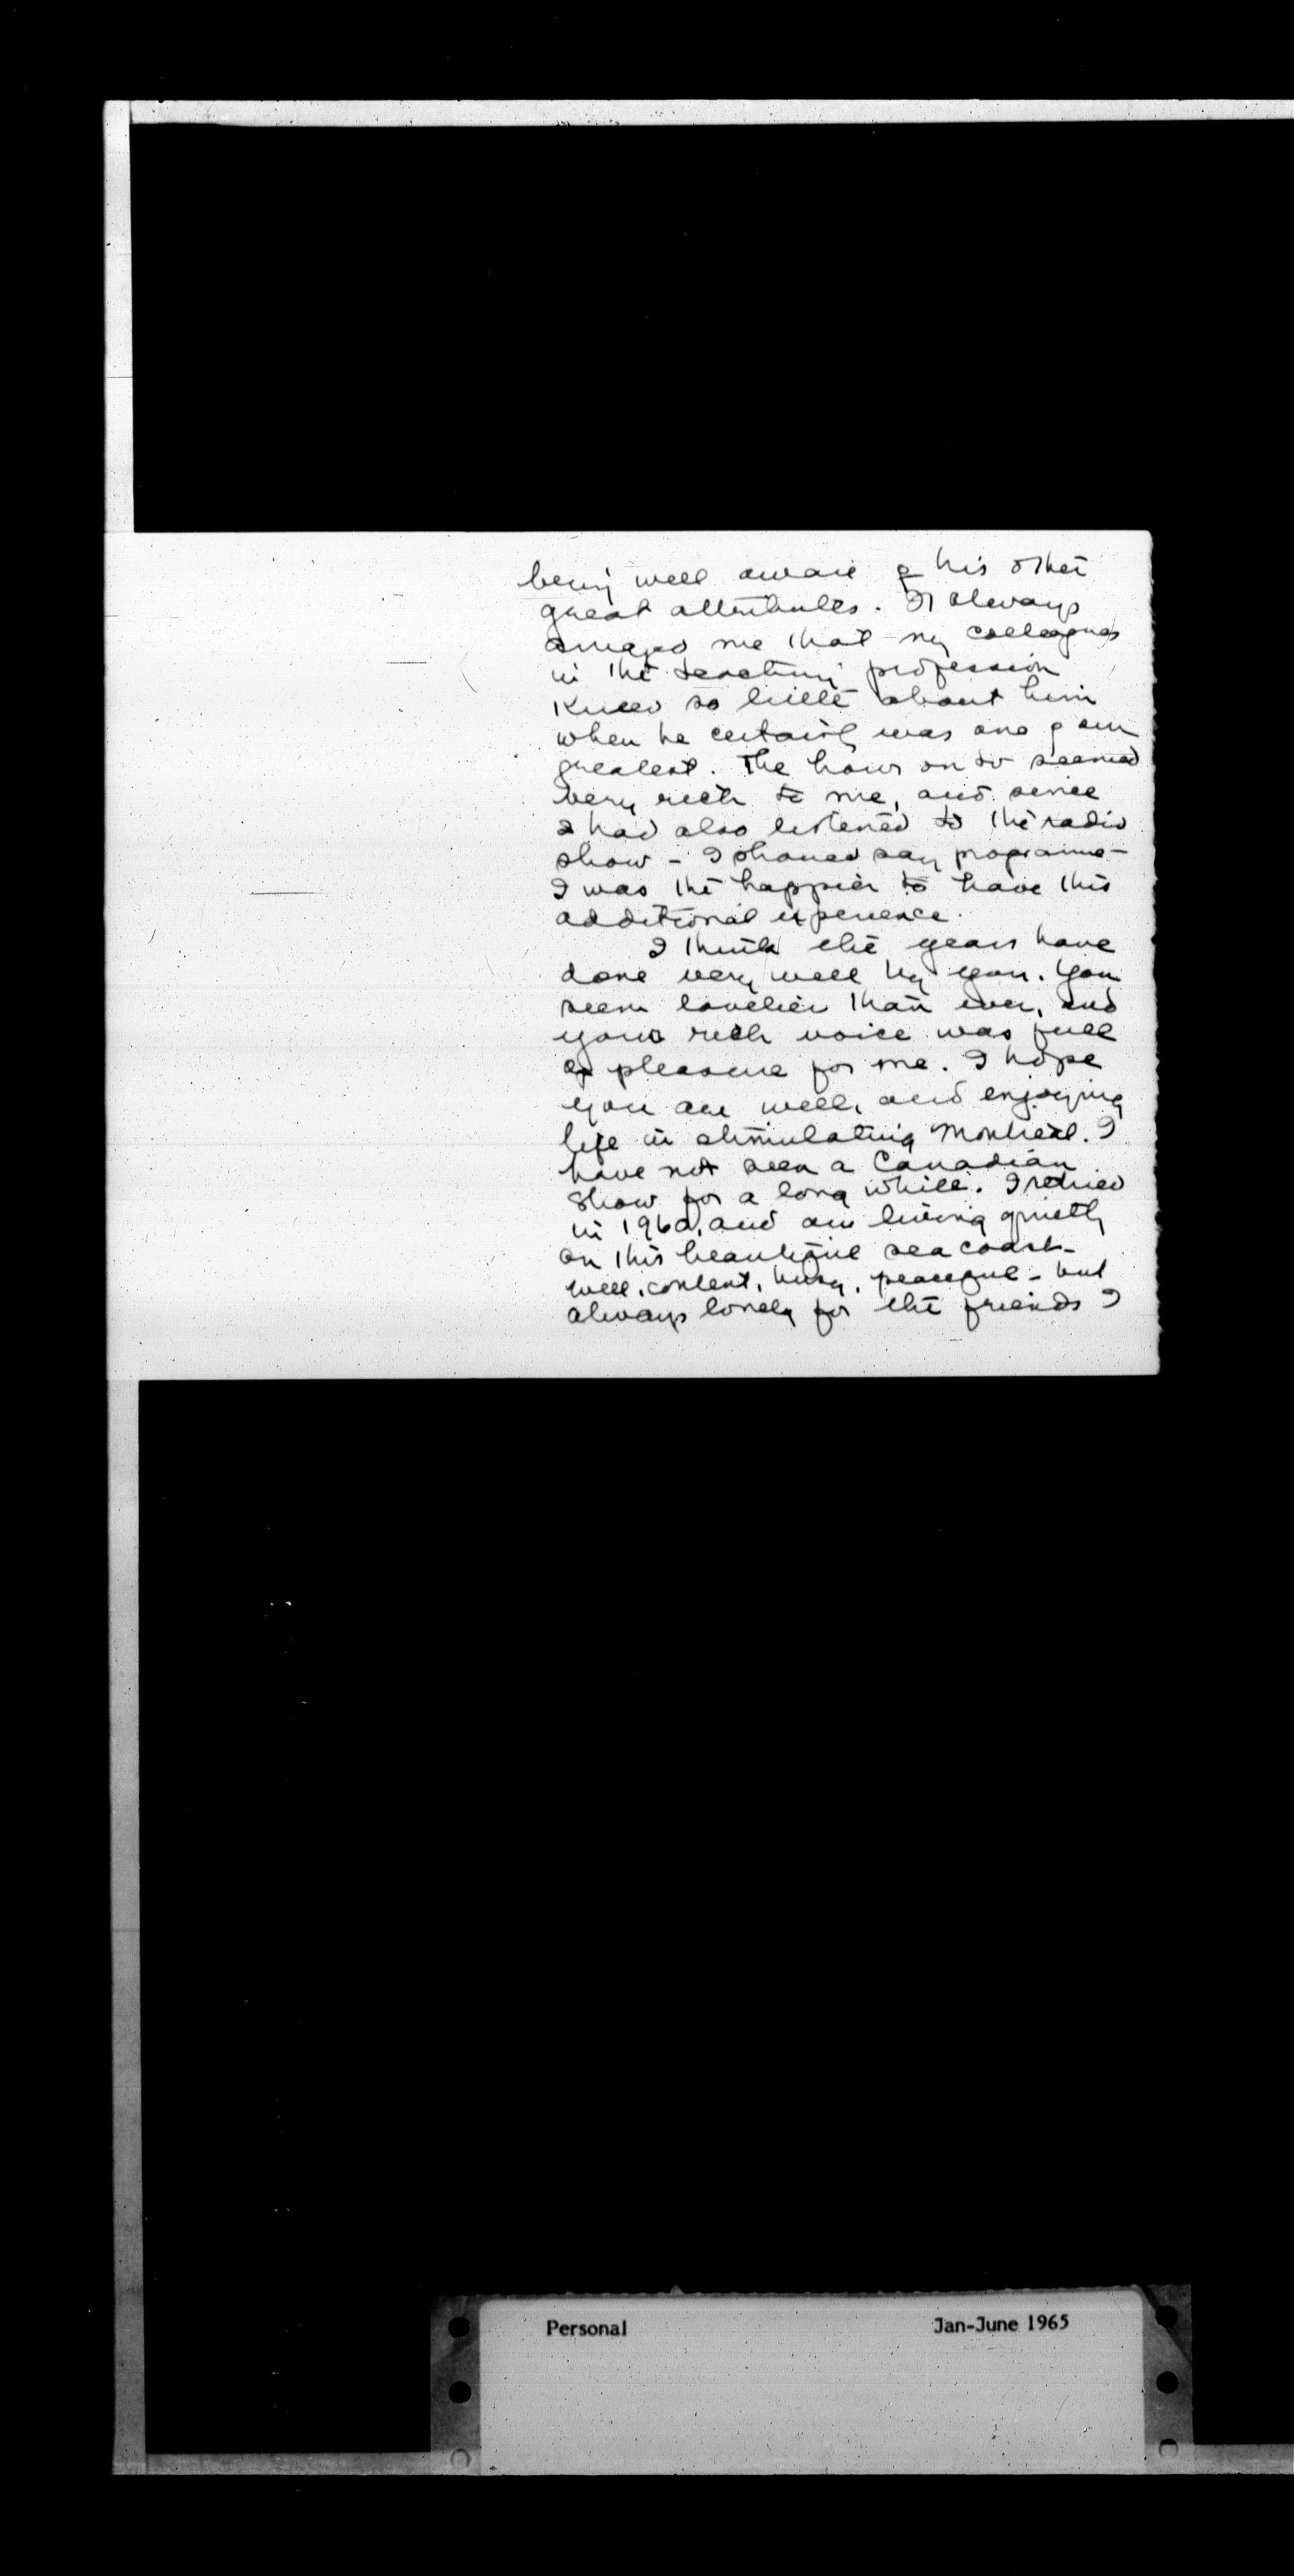 being well aware of his other
great attributes. It always
amazed me that my colleagues
in the teaching profession
knew so little about him
when he certainly was one of our
greatest. The hour on tv seemed
very rich to me, and since
I had also listened to the radio
show - I should say programme -
I was the happier to have this
additional experience.
I think the years have
done very well by you. You
seem lovelier than ever, and
your rich voice was full
of pleasure for me. I hope
you are well, and enjoying
life in stimulating Montreal. I
have not seen a Canadian
show for a long while. I retired
in 1960, and am living quietly
on this beautiful sea coast -
well, content, busy, peaceful - but
always lonely for the friends I
Personal Jan-June 1965